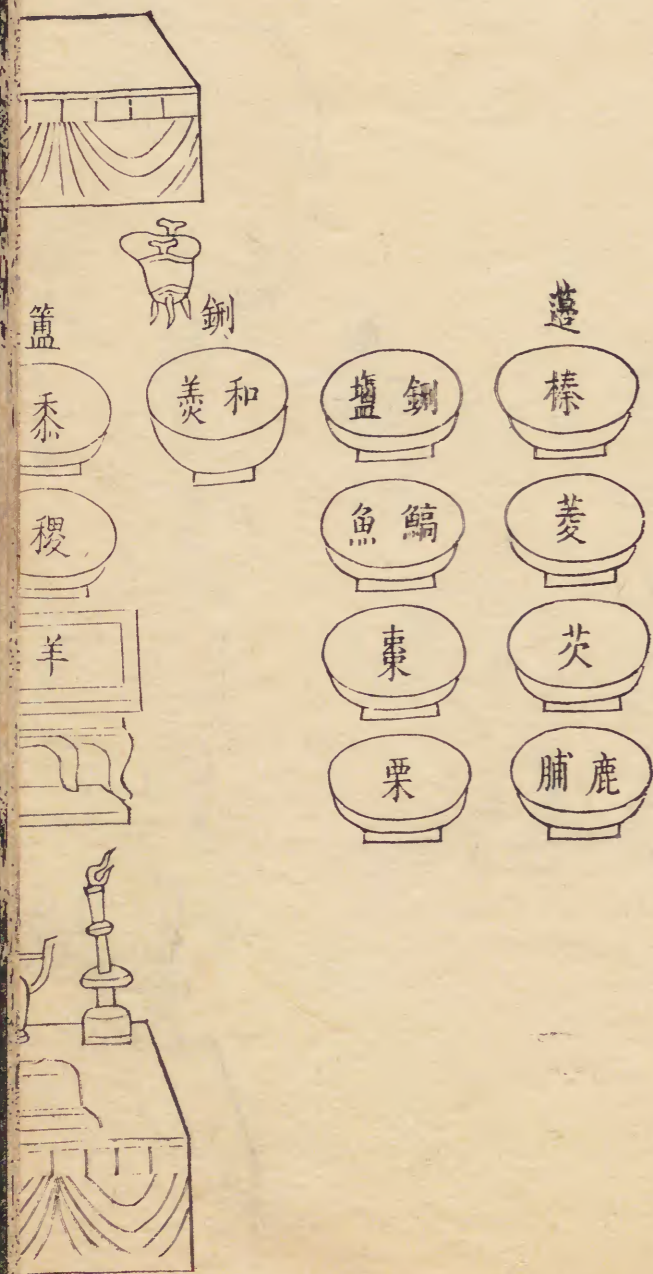 籩
榛
菱
芡
鹿脯
鉶鹽
鰝魚
棗
栗
鉶
和羹
簠
黍
稷
羊